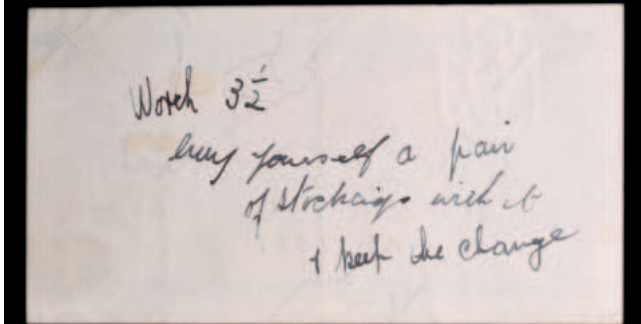 Worth 3½
buy yourself a pair
of stockings with it
& keep the change